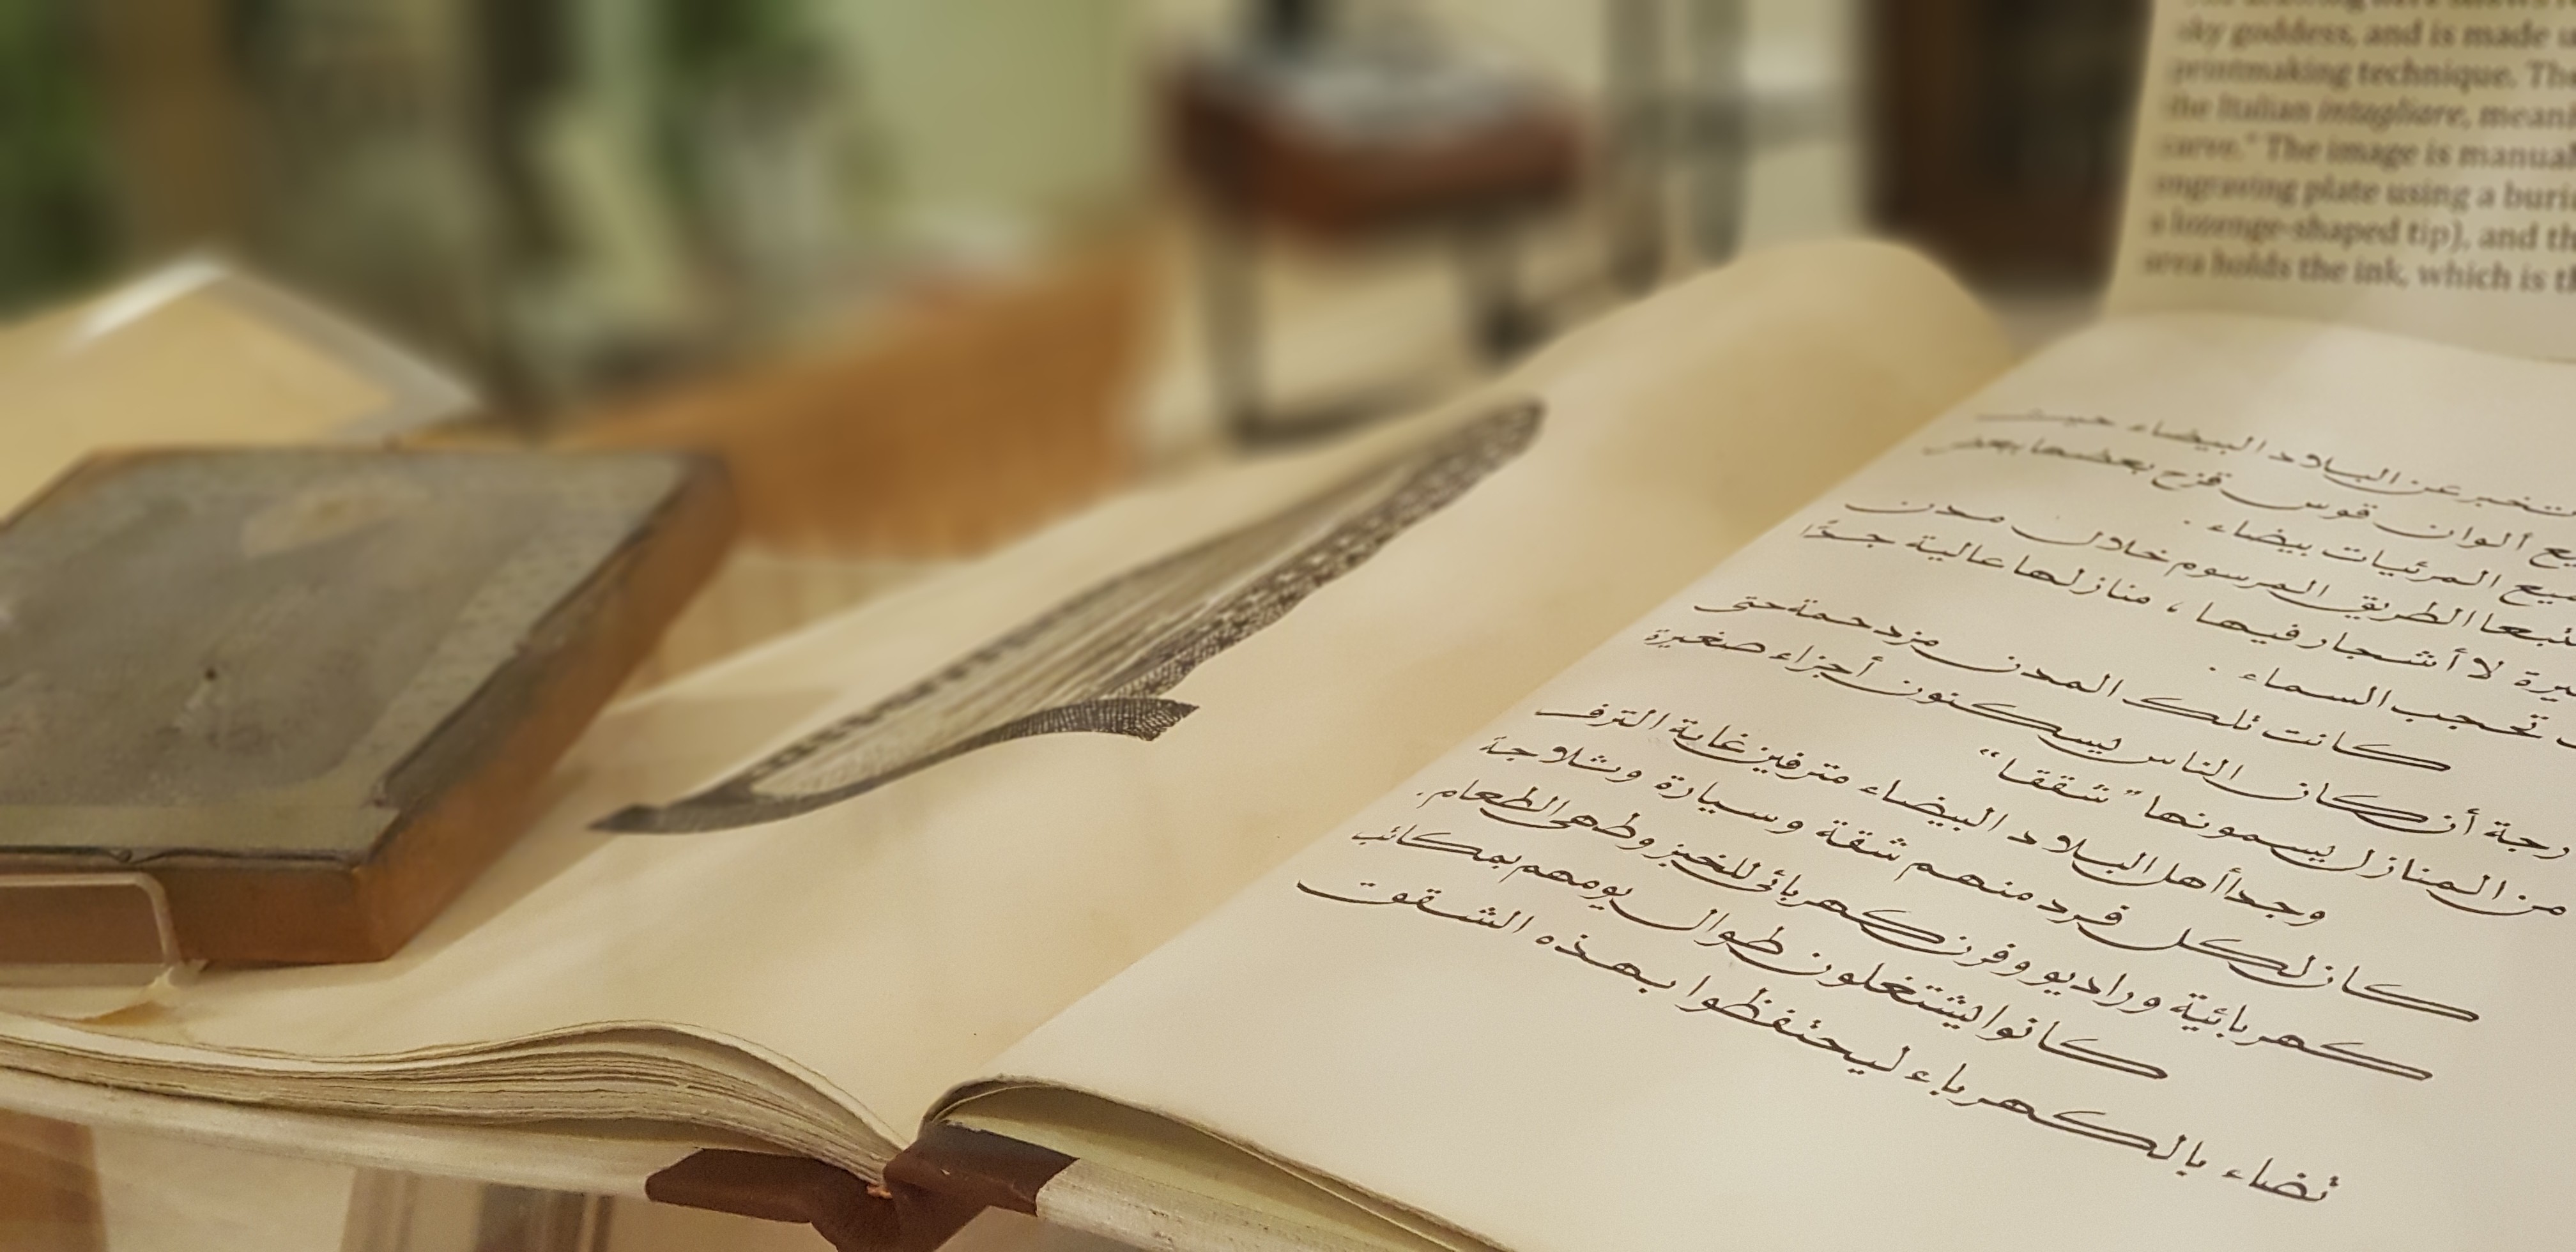 sky goddess, and is made
printmaking technique.
the Italian intagliare,
The image is manual
engraving plate using a
a lozenge-shaped tip), and
area holds the ink, which is
عن البلاد البيضاء حين
ألوان قوس قزح بعضها بعد
المرئيات بيضاء .
الطريق المرسوم خلال مدن
لا أشجار فيها ، منازلها عالية جدًا
تحجب السماء .
كانت تلك المدن مزدحمة حتى
أن كان الناس يسكنون أجزاء صغيرة
من المنازل يسمونها "شققا"
وجدا أهل البلاد البيضاء مترفين غاية الترف
كان لكل فرد منهم شقة وسيارة وثلاجة
كهربائية وراديو وفرن كهربائى للخبز وطهى الطعام .
كانوا يشتغلون طوال يومهم بمكاتب
تضاء بالكهرباء ليحتفظوا بهذه الشقق